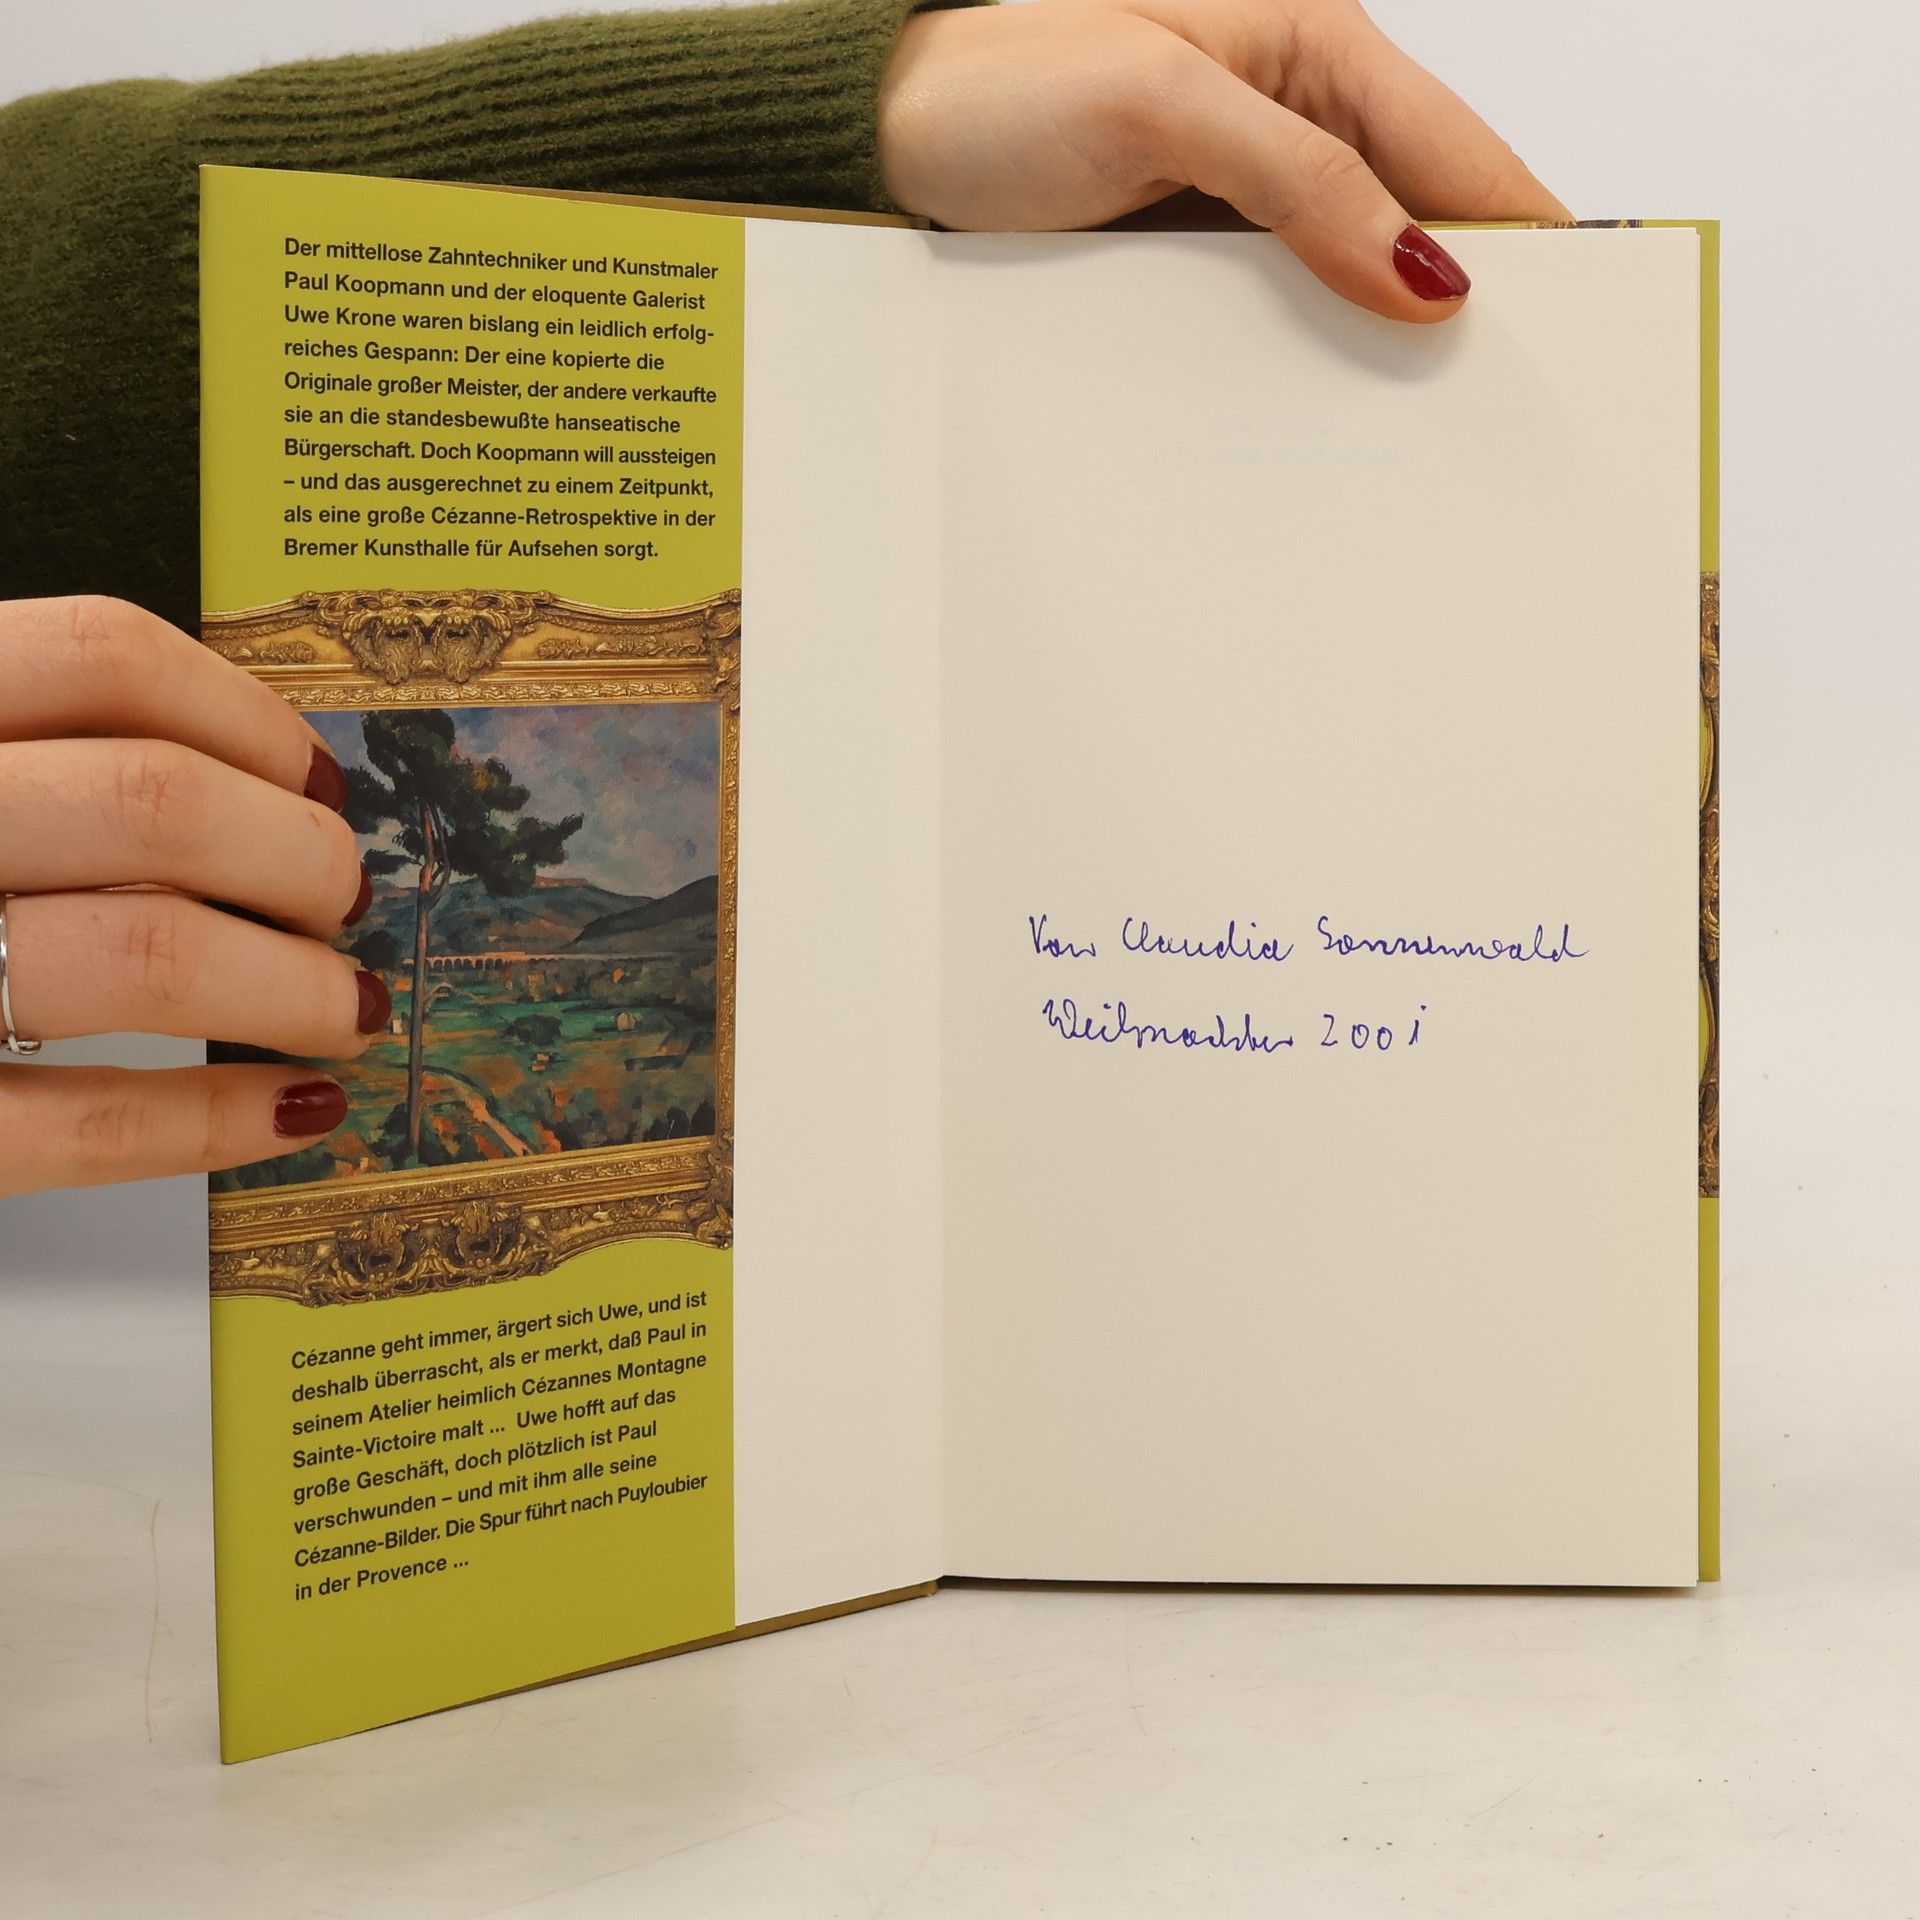 Der mittellose Zahntechniker und Kunstmaler
Paul Koopmann und der eloquente Galerist
Uwe Krone waren bislang ein leidlich erfolg-
reiches Gespann: Der eine kopierte die
Originale großer Meister, der andere verkaufte
sie an die standesbewußte hanseatische
Bürgerschaft. Doch Koopmann will aussteigen
– und das ausgerechnet zu einem Zeitpunkt,
als eine große Cézanne-Retrospektive in der
Bremer Kunsthalle für Aufsehen sorgt.
Cézanne geht immer, ärgert sich Uwe, und ist
deshalb überrascht, als er merkt, daß Paul in
seinem Atelier heimlich Cézannes Montagne
Sainte-Victoire malt ... Uwe hofft auf das
große Geschäft, doch plötzlich ist Paul
verschwunden – und mit ihm alle seine
Cézanne-Bilder. Die Spur führt nach Puyloubier
in der Provence ...
Von Claudia Sonnenwald
Weihnachten 2001